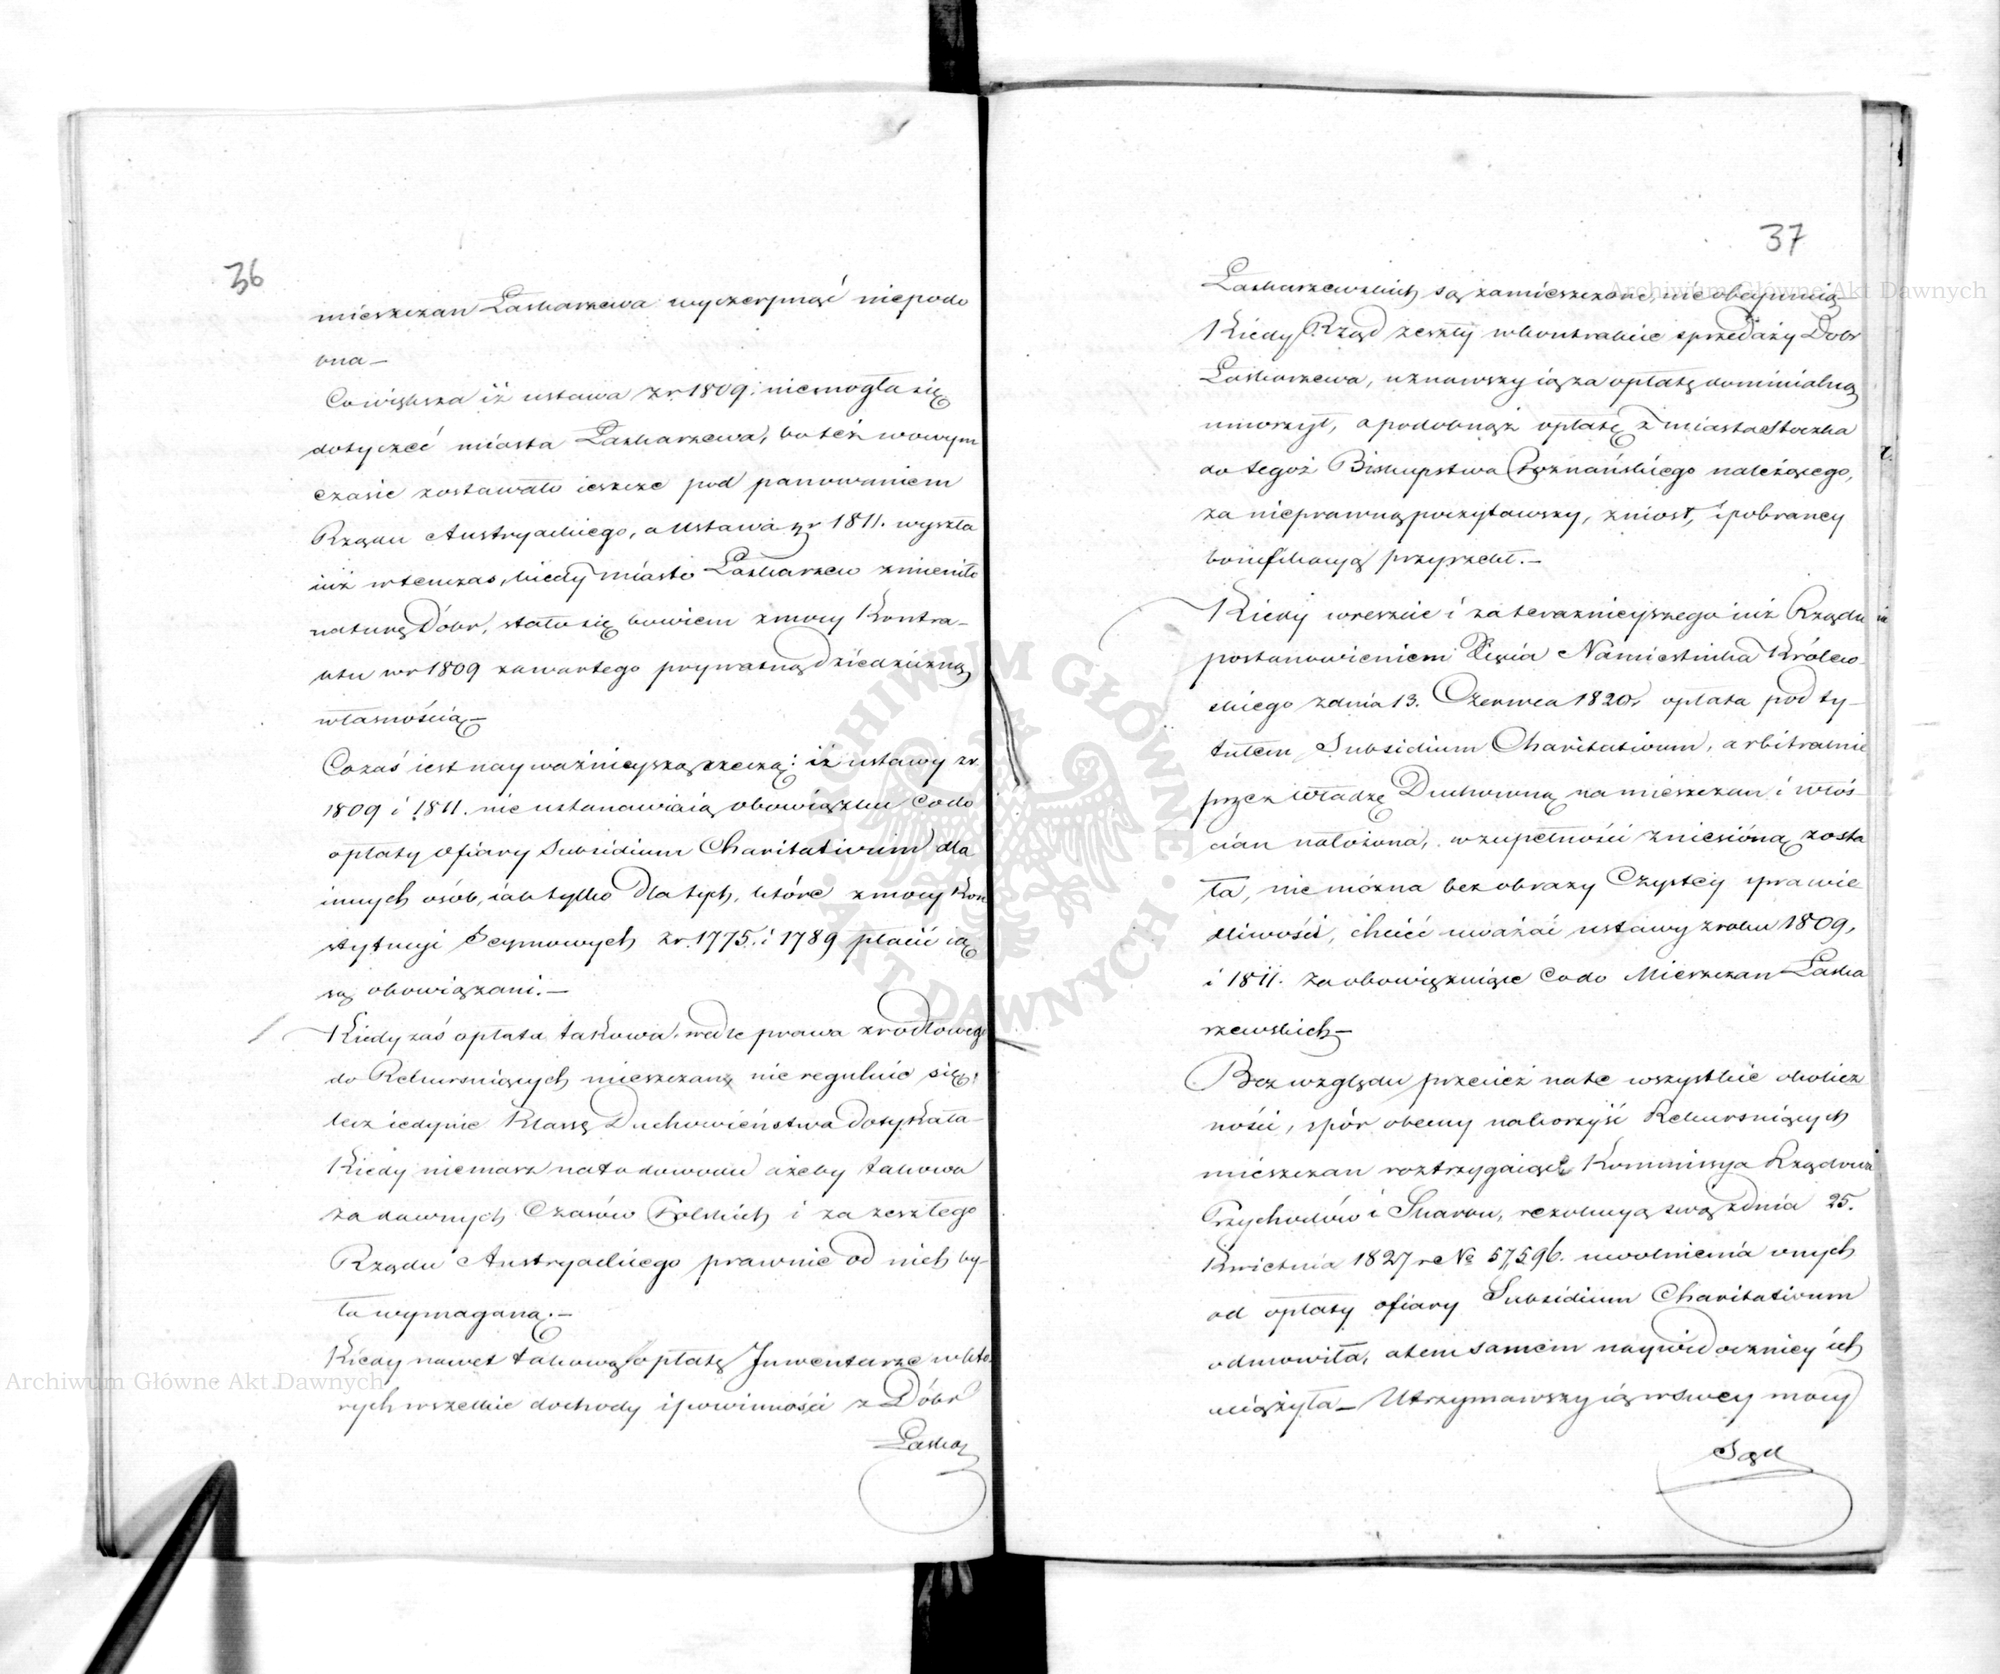 36
mieszczan Łaskarzewa wyczerpnąć niepodo
bna –
Co większa iż ustawa z r 1809. niemogła się
dotyczeć miasta Łaskarzewa, bo też w owym
czasie zostawało ieszcze pod panowaniem
Rządu Austryackiego, a Ustawa z r 1811. wyszła
iuż wtenczas, kiedy miasto Łaskarzew zmieniło
naturę Dóbr, stało się bowiem z mocy Kontra-
ktu w r 1809 zawartego prywatną dziedziczną
własnością –
Cozaś iest nayważnieyszą rzeczą: iż ustawy z r.
1809 i 1811. nie ustanawiaią obowiązku co do
opłaty ofiary Subsidium Charitativum dla
innych osób, iak tylko dla tych, które z mocy Kon
stytucyi Seymowych z r. 1775. i 1789 płacić ią
są obowiązani. –
Kiedy zaś opłata takowa wedle prawa zrodłowego
do Rekursuiących mieszczan nie reguluie się,
lecz iedynie Klassę Duchowieństwa dotykała –
Kiedy niemasz na to dowodu ażeby takowa
za dawnych Czasów Polskich i za zeszłego
Rządu Austryackiego prawnie od nich by-
ła wymaganą. –
Kiedy nawet takową opłatę Inwentarze w któ
rych wszelkie dochody i powinności z Dóbr
Łaska
37
Łaskarzewskich są zamieszczone, nie obeymuią –
Kiedy Rząd zeszły w kontrakcie sprzedaży Dobr
Łaskarzewa, uznawszy ią za opłatę dominialną
umorzył, a podobnąż opłatę z miasta Stoczka
do tegoż Biskupstwa Poznańskiego należącego,
za nieprawną poczytawszy, zniosł, i pobraney
bonifikacyą przyrzekł. –
Kiedy wreszcie i za teraznieyszego iuż Rządu
postanowieniem Xięcia Namiestnika Królew-
skiego z dnia 13. Czerwca 1820 r. opłata pod ty-
tułem Subsidium Charitativum, arbitralnie
przez Władzę Duchowną na mieszczan i włoś-
cian nałożona, w zupełności zniesioną zosta
ła, nie można bez obrazy Czystey sprawie
dliwości, chcieć uważać ustawy z roku 1809,
i 1811. za obowiązuiące co do Mieszczan Łaska
rzewskich –
Bez względu przecież na te wszystkie okolicz
ności, spór obecny na korzyść Rekursuiących
mieszczan roztrzygaiące Kommissya Rządowa
Przychodów i Skarbu, rezolucyą swą z dnia 25.
Kwietnia 1827 r. No 57,596. uwolnienia onych
od opłaty ofiary Subsidium Charitativum
odmowiła, a tem samem naywidoczniey ich
uciążyła – Utrzymawszy ią w swey mocy
Sąd
Archiwum Główne Akt Dawnych
Archiwum Główne Akt Dawnych
ARCHIWUM GŁÓWNE AKT DAWNYCH